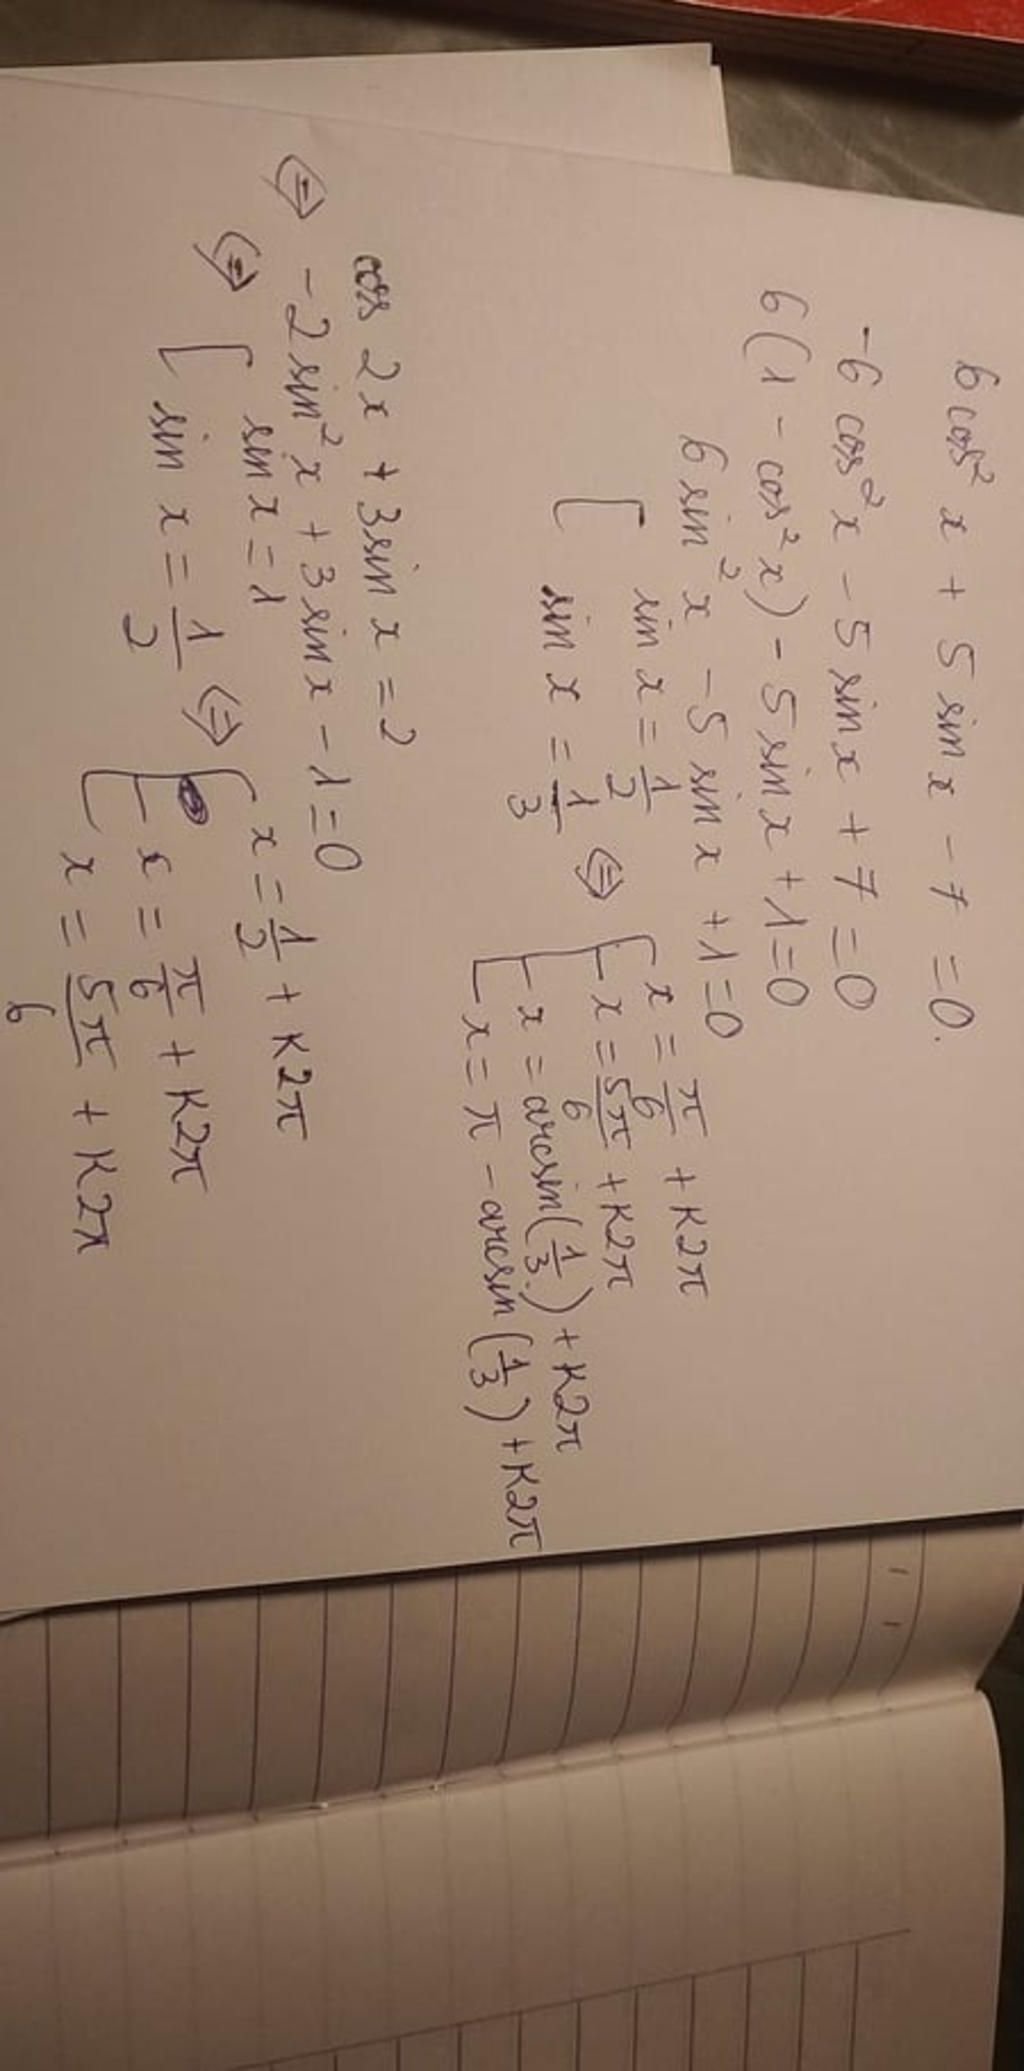 6 cos² x + 5 sin x - 7 = 0.
-6 cos² x - 5 sin x + 7 = 0
6 (1 - cos² x) - 5 sin x + 1 = 0
6 sin² x - 5 sin x + 1 = 0
[ sin x = 1/2
sin x = 1/3 ⇔ [ x = π/6 + K2π
x = 5π/6 + K2π
[ x = arcsin(1/3) + K2π
x = π - arcsin(1/3) + K2π
cos 2x + 3 sin x = 2
⇔ -2 sin² x + 3 sin x - 1 = 0
⇔ [ sin x = 1
sin x = 1/2 ⇔ [ x = 1/2 + K2π
[ x = π/6 + K2π
x = 5π/6 + K2π